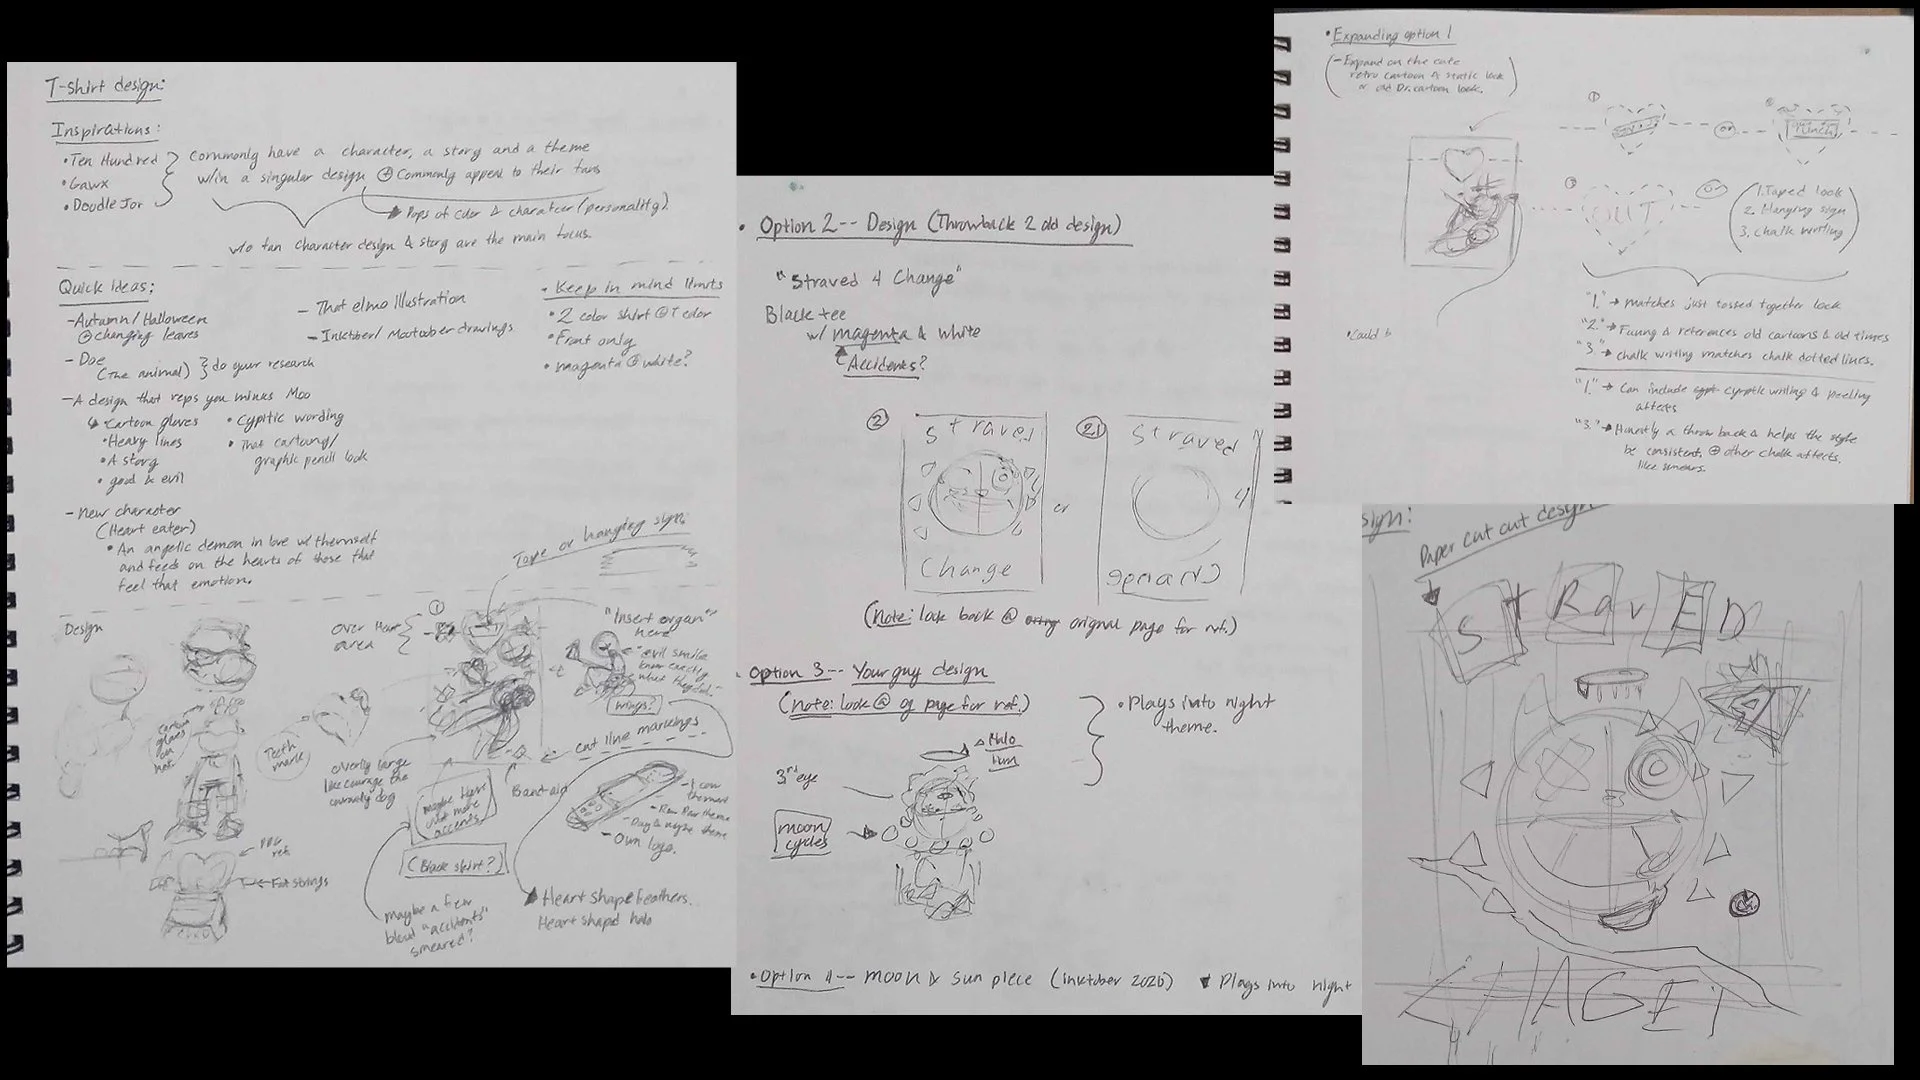 T-shirt design:
Inspirations:
• Ten Hundred
• Gawx
• Doodle Jor
commonly have a character, a story and a theme
w/in a singular design ⊕ commonly append to their fans
Pops of color & character (personality).
w/o fan character design & story are the main focus.
Quick Ideas:
- Autumn/Halloween
⊕ changing leaves
- Doe
(The animal) } do your research
- A design that reps you minus Moo
↳ Cartoon gloves
• Heavy lines
• A story
• good & evil
• Cyptic wording
• That cartoony/
graphic pencil look
- New character
(Heart eater)
• An angelic demon in love w/ themself
and feeds on the hearts of those that
feel that emotion.
- That elmo Illustration
- Inktober/ Mootober drawings
• Keep in mind limits
• 2 color shirt @ T color
• Front only
• magenta @ white?
Design
Tape or hanging sign
over Heart
area
①
"Insert organ"
here
"evil smile
know exactly
what they did."
wings?
cut line markings
Teeth
mark
overly large
like courage the
cowardly dog
maybe Have
out more
accents
(Black shirt?)
Band-aid
- Own logo.
PPG
ref.
maybe a few
blood "accidents"
smeared?
Heart shape feathers.
Heart shaped halo
• Option 2-- Design (Throwback 2 old design)
"Straved 4 Change"
Black tee
w/ magenta & white
Accidents?
②
Straved
Change
or
2.1
Straved
4
Change
(Note: look back @ orignal page for ref.)
Option 3-- Your guy design
(Note: look @ og page for ref.)
• Plays into night
theme.
Halo
3rd eye
moon
cycles
• Option 4-- moon & sun piece (inktober 2020)
Plays into night
• Expanding option 1
(- Expand on the cute
retro cartoon & static look
or old Dr. cartoon look.)
①
or
②
Punch
③
OUT
or
(1. Taped look
2. Hanging sign
3. Chalk writing)
"1." → matches just tossed together look
"2." → Funny & references old cartoons & old times
"3." → chalk writing matches chalk dotted lines.
"1." → Can include cyptic writing & peeling
affects
"3." → Honestly a throw back & helps the style
be consistent. ⊕ other chalk affects.
like smears.
• Could b
sign:
Paper cut out design
StRavED